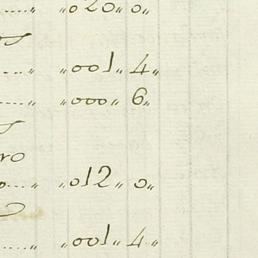 ..... „ „020„ 0„
.... „ „001„ 4„
.... „ „000„ 6„
ro
o... „ „012„ 0„
.... „ „001„ 4„